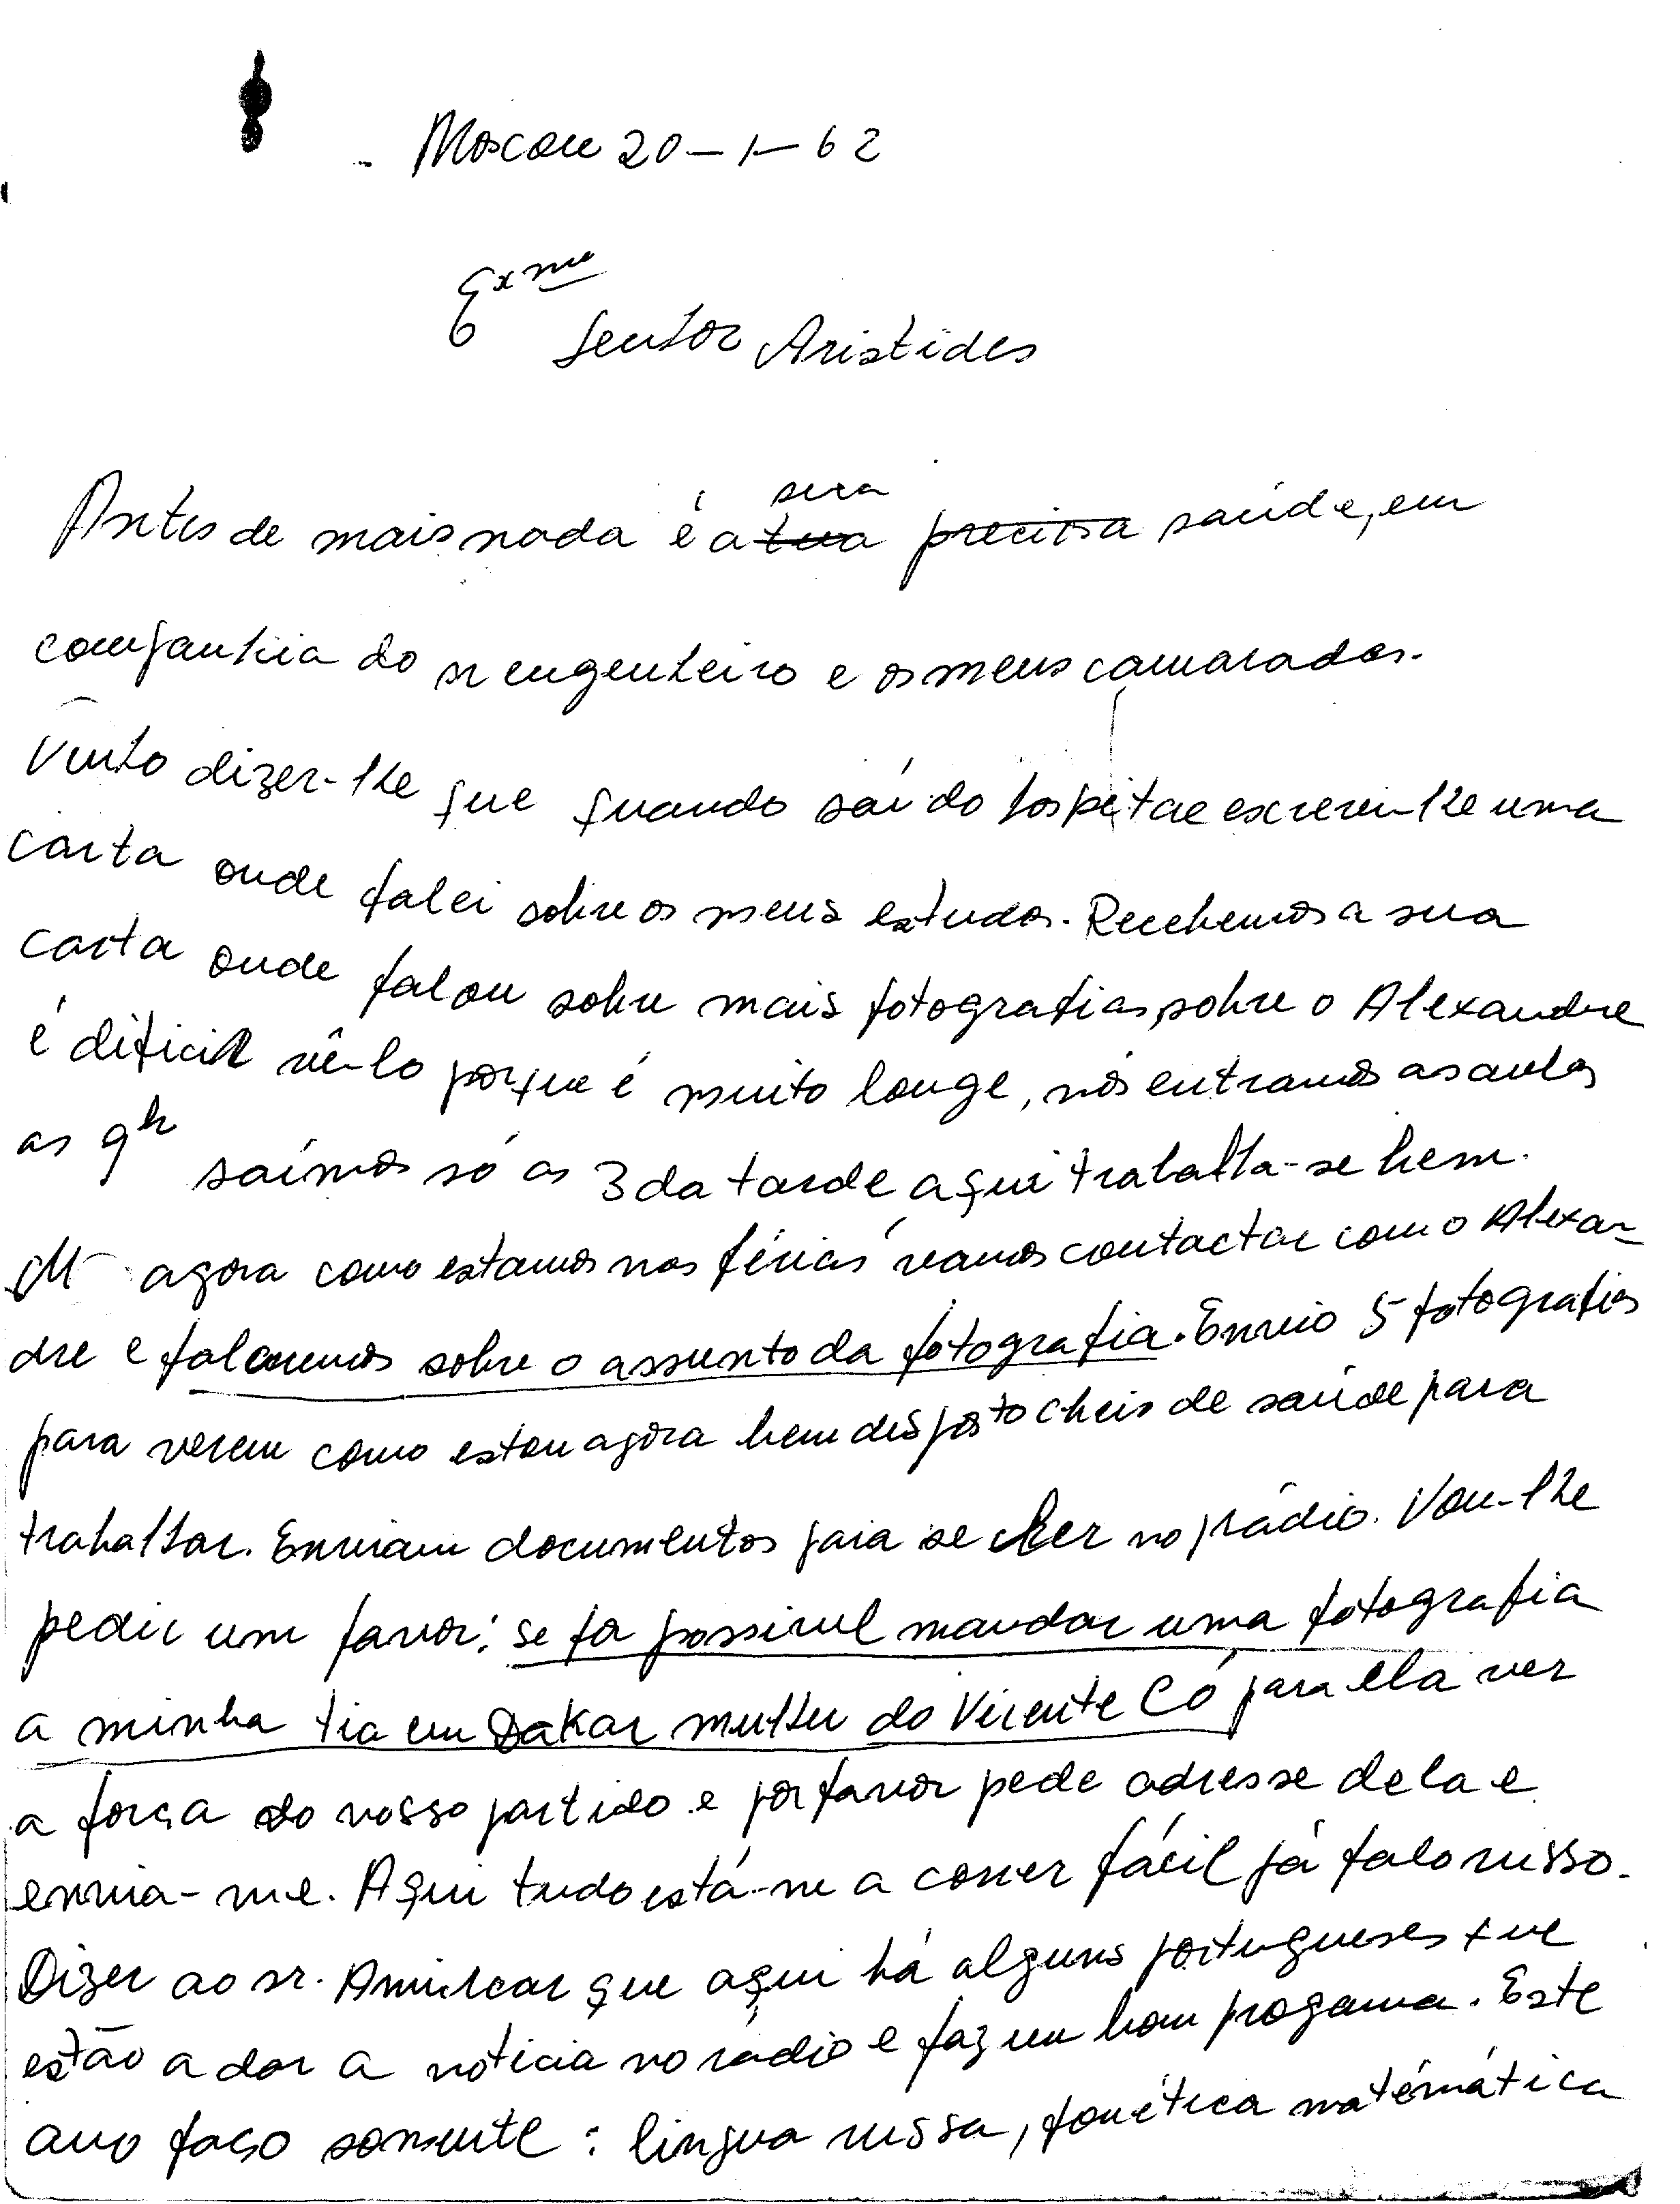 Moscou 20-1-62
Exmo
Senhor Aristides
sua
Antes de mais nada é a tua preciosa saúde, em
companhia do sr engenheiro e os meus camaradas.
Venho dizer-lhe que quando saí do hospital escrevi-lhe uma
carta onde falei sobre os meus estudos. Recebemos a sua
carta onde falou sobre mais fotografias, sobre o Alexandre
é dificil vê-lo porque é muito longe, nós entramos as aulas
as 9h saímos só as 3 da tarde aqui trabalha-se bem.
agora como estamos nas férias vamos contactar com o Alexan-
dre e falaremos sobre o assunto da fotografia. Envio 5 fotografias
para verem como estou agora bem disposto cheio de saúde para
trabalhar. Enviam documentos para se ler no rádio. Vou-lhe
pedir um favor: se fôr possivel mandar uma fotografia
a minha tia em Dakar mulher do Vicente Có para ela ver
a força do nosso partido e por favor pede adresse dela e
envia-me. Aqui tudo está-me a correr fácil já falo russo.
Dizer ao sr. Amilcar que aqui há alguns portugueses que
estão a dar a noticia no rádio e fazem bom progama. Este
ano faço somente: lingua russa, fonética matématica